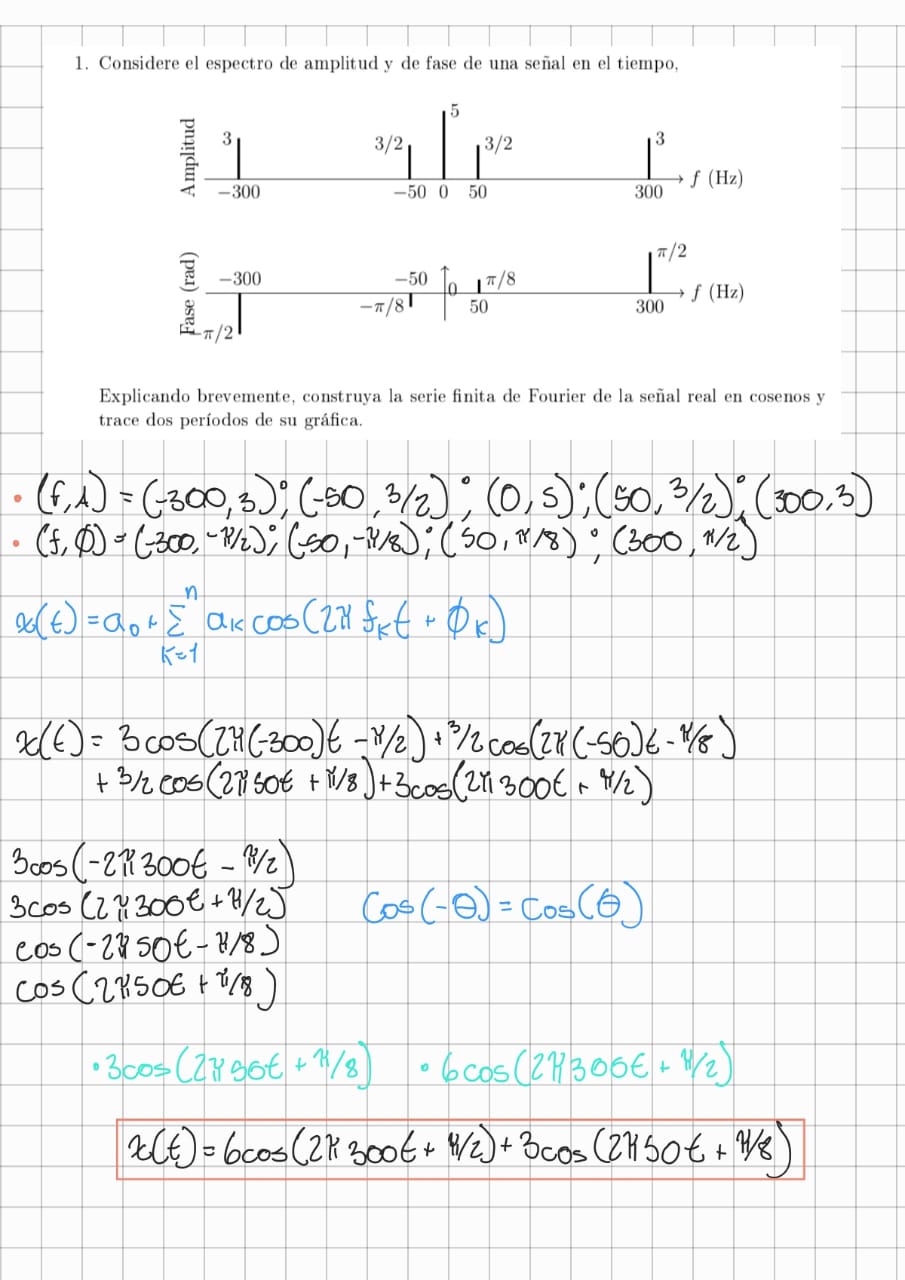 1. Considere el espectro de amplitud y de fase de una señal en el tiempo,
Amplitud
3
3/2
5
3/2
3
−300
−50 0 50
300
f (Hz)
Fase (rad)
−300
−50
0
π/8
π/2
−π/2
−π/8
50
300
f (Hz)
Explicando brevemente, construya la serie finita de Fourier de la señal real en cosenos y
trace dos períodos de su gráfica.
• (f,A) = (-300,3); (-50,3/2); (0,5); (50,3/2); (300,3)
• (f,ϕ) = (-300,-π/2); (-50,-π/8); (50,π/8); (300,π/2)
n
x(t) = a₀ + Σ aₖ cos(2π fₖt + ϕₖ)
K=1
x(t) = 3cos(2π(-300)t - π/2) + 3/2 cos(2π(-50)t - π/8)
+ 3/2 cos(2π50t + π/8) + 3cos(2π300t + π/2)
3cos(-2π300t - π/2)
3cos(2π300t + π/2) Cos(-θ) = Cos(θ)
cos(-2π50t - π/8)
cos(2π50t + π/8)
• 3cos(2π50t + π/8) • 6cos(2π300t + π/2)
x(t) = 6cos(2π300t + π/2) + 3cos(2π50t + π/8)